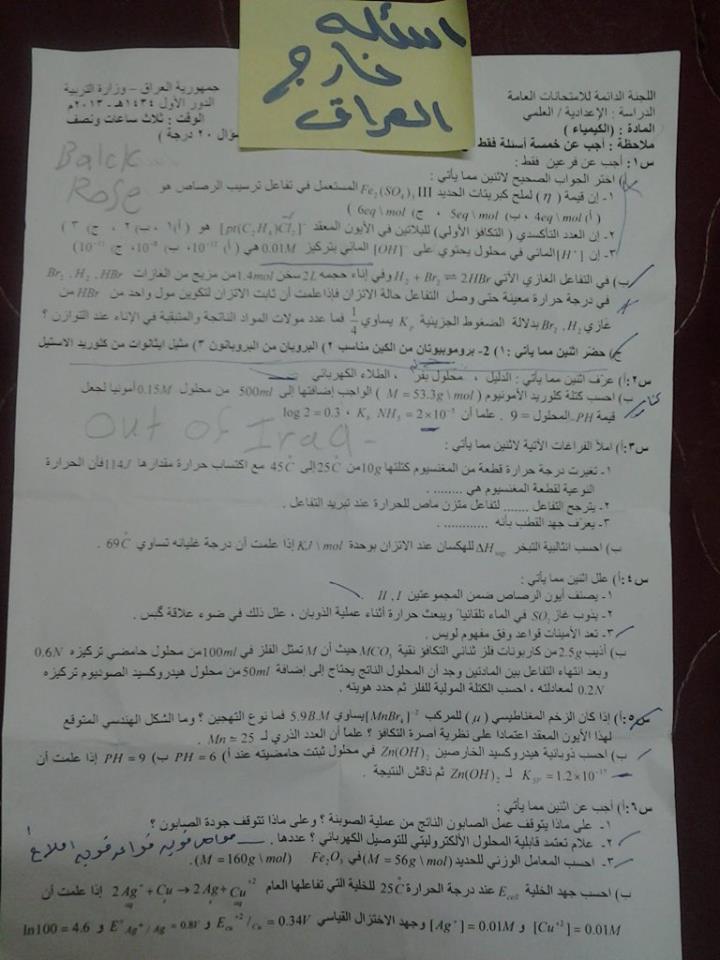 اسئله
خارج
العراق
جمهورية العراق – وزارة التربية
الدور الأول ١٤٣٤هـ - ٢٠١٣م
الوقت : ثلاث ساعات ونصف
سؤال ٢٠ درجة )
اللجنة الدائمة للامتحانات العامة
الدراسة : الإعدادية / العلمي
المادة : (الكيمياء )
ملاحظة : أجب عن خمسة أسئلة فقط
Balck
Rose
س١: أجب عن فرعين فقط :
أ) اختر الجواب الصحيح لاثنين مما يأتي :
١- إن قيمة ( η ) لملح كبريتات الحديد III Fe₂(SO₄)₃ المستعمل في تفاعل ترسيب الرصاص هو
( أ) 4eq \ mol ، ب) 5eq \ mol ، ج) 6eq \ mol )
٢- إن العدد التأكسدي ( التكافؤ الأولي) للبلاتين في الأيون المعقد [pt(C₂H₄)Cl₃]⁻ هو ( أ) ١ ، ب) ٢ ، ج) ٣ )
٣- إن [H⁺] المائي في محلول يحتوي على [OH]⁻ المائي بتركيز 0.01M هي ( أ) 10⁻¹² ، ب) 10⁻⁸ ، ج) 10⁻¹¹ )
ب) في التفاعل الغازي الآتي H₂ + Br₂ ⇌ 2HBr وفي إناء حجمه 2L سخن 1.4mol من مزيج من الغازات Br₂ , H₂ , HBr
في درجة حرارة معينة حتى وصل التفاعل حالة الاتزان فإذا علمت أن ثابت الاتزان لتكوين مول واحد من HBr من
غازي Br₂ , H₂ بدلالة الضغوط الجزيئية Kₚ يساوي 1/4 فما عدد مولات المواد الناتجة والمتبقية في الإناء عند التوازن ؟
ج) حضّر اثنين مما يأتي : ١) 2- بروموبيوتان من الكين مناسب ٢) البروبان من البروبانون ٣) مثيل ايثانوات من كلوريد الاستيل
س٢: أ) عرّف اثنين مما يأتي : الدليل ، محلول بفر ، الطلاء الكهربائي
ب) احسب كتلة كلوريد الأمونيوم ( M = 53.3g \ mol ) الواجب إضافتها إلى 500ml من محلول 0.15M أمونيا لجعل
قيمة PH المحلول = 9 . علما أن log 2 = 0.3 ، K_b NH₃ = 2×10⁻⁵
Out of Iraq -
س٣: أ) املأ الفراغات الآتية لاثنين مما يأتي :
١- تغيرت درجة حرارة قطعة من المغنسيوم كتلتها 10g من 25C° إلى 45C° مع اكتساب حرارة مقدارها 114J فأن الحرارة
النوعية لقطعة المغنسيوم هي ........ .
٢- يترجح التفاعل ....... لتفاعل متزن ماص للحرارة عند تبريد التفاعل .
٣- يعرّف جهد القطب بأنه ............
ب) احسب انثالبية التبخر ΔH_vap للهكسان عند الاتزان بوحدة KJ \ mol إذا علمت أن درجة غليانه تساوي 69C° .
س٤: أ) علل اثنين مما يأتي :
١- يصنف أيون الرصاص ضمن المجموعتين II , I .
٢- يذوب غاز SO₂ في الماء تلقائياً ويبعث حرارة أثناء عملية الذوبان ، علل ذلك في ضوء علاقة كبس .
٣- تعد الأمينات قواعد وفق مفهوم لويس .
ب) أذيب 2.5g من كاربونات فلز ثنائي التكافؤ نقية MCO₃ حيث أن M تمثل الفلز في 100ml من محلول حامضي تركيزه 0.6N
وبعد انتهاء التفاعل بين المادتين وجد أن المحلول الناتج يحتاج إلى إضافة 50ml من محلول هيدروكسيد الصوديوم تركيزه
0.2N لمعادلته ، احسب الكتلة المولية للفلز ثم حدد هويته .
س٥: أ) إذا كان الزخم المغناطيسي ( μ ) للمركب [MnBr₄]⁻² يساوي 5.9B.M فما نوع التهجين ؟ وما الشكل الهندسي المتوقع
لهذا الأيون المعقد اعتمادا على نظرية أصرة التكافؤ ؟ علما أن العدد الذري لـ Mn = 25 .
ب) احسب ذوبانية هيدروكسيد الخارصين Zn(OH)₂ في محلول ثبتت حامضيته عند أ) PH = 6 ب) PH = 9 إذا علمت أن
K_SP = 1.2×10⁻¹⁷ لـ Zn(OH)₂ ثم ناقش النتيجة .
س٦: أ) أجب عن اثنين مما يأتي :
١- على ماذا يتوقف عمل الصابون الناتج من عملية الصوبنة ؟ وعلى ماذا تتوقف جودة الصابون ؟
٢- علام تعتمد قابلية المحلول الألكتروليتي للتوصيل الكهربائي ؟ عددها .
٣- احسب المعامل الوزني للحديد (M = 56g \ mol) في Fe₂O₃ (M = 160g \ mol).
ب) احسب جهد الخلية E_cell عند درجة الحرارة 25C° للخلية التي تفاعلها العام 2Ag⁺ + Cu → 2Ag + Cu⁺² إذا علمت أن
[Cu⁺²] = 0.01M و [Ag⁺] = 0.01M وجهد الاختزال القياسي E°Cu⁺²/Cu = 0.34V و E°Ag⁺/Ag = 0.8V و ln100 = 4.6